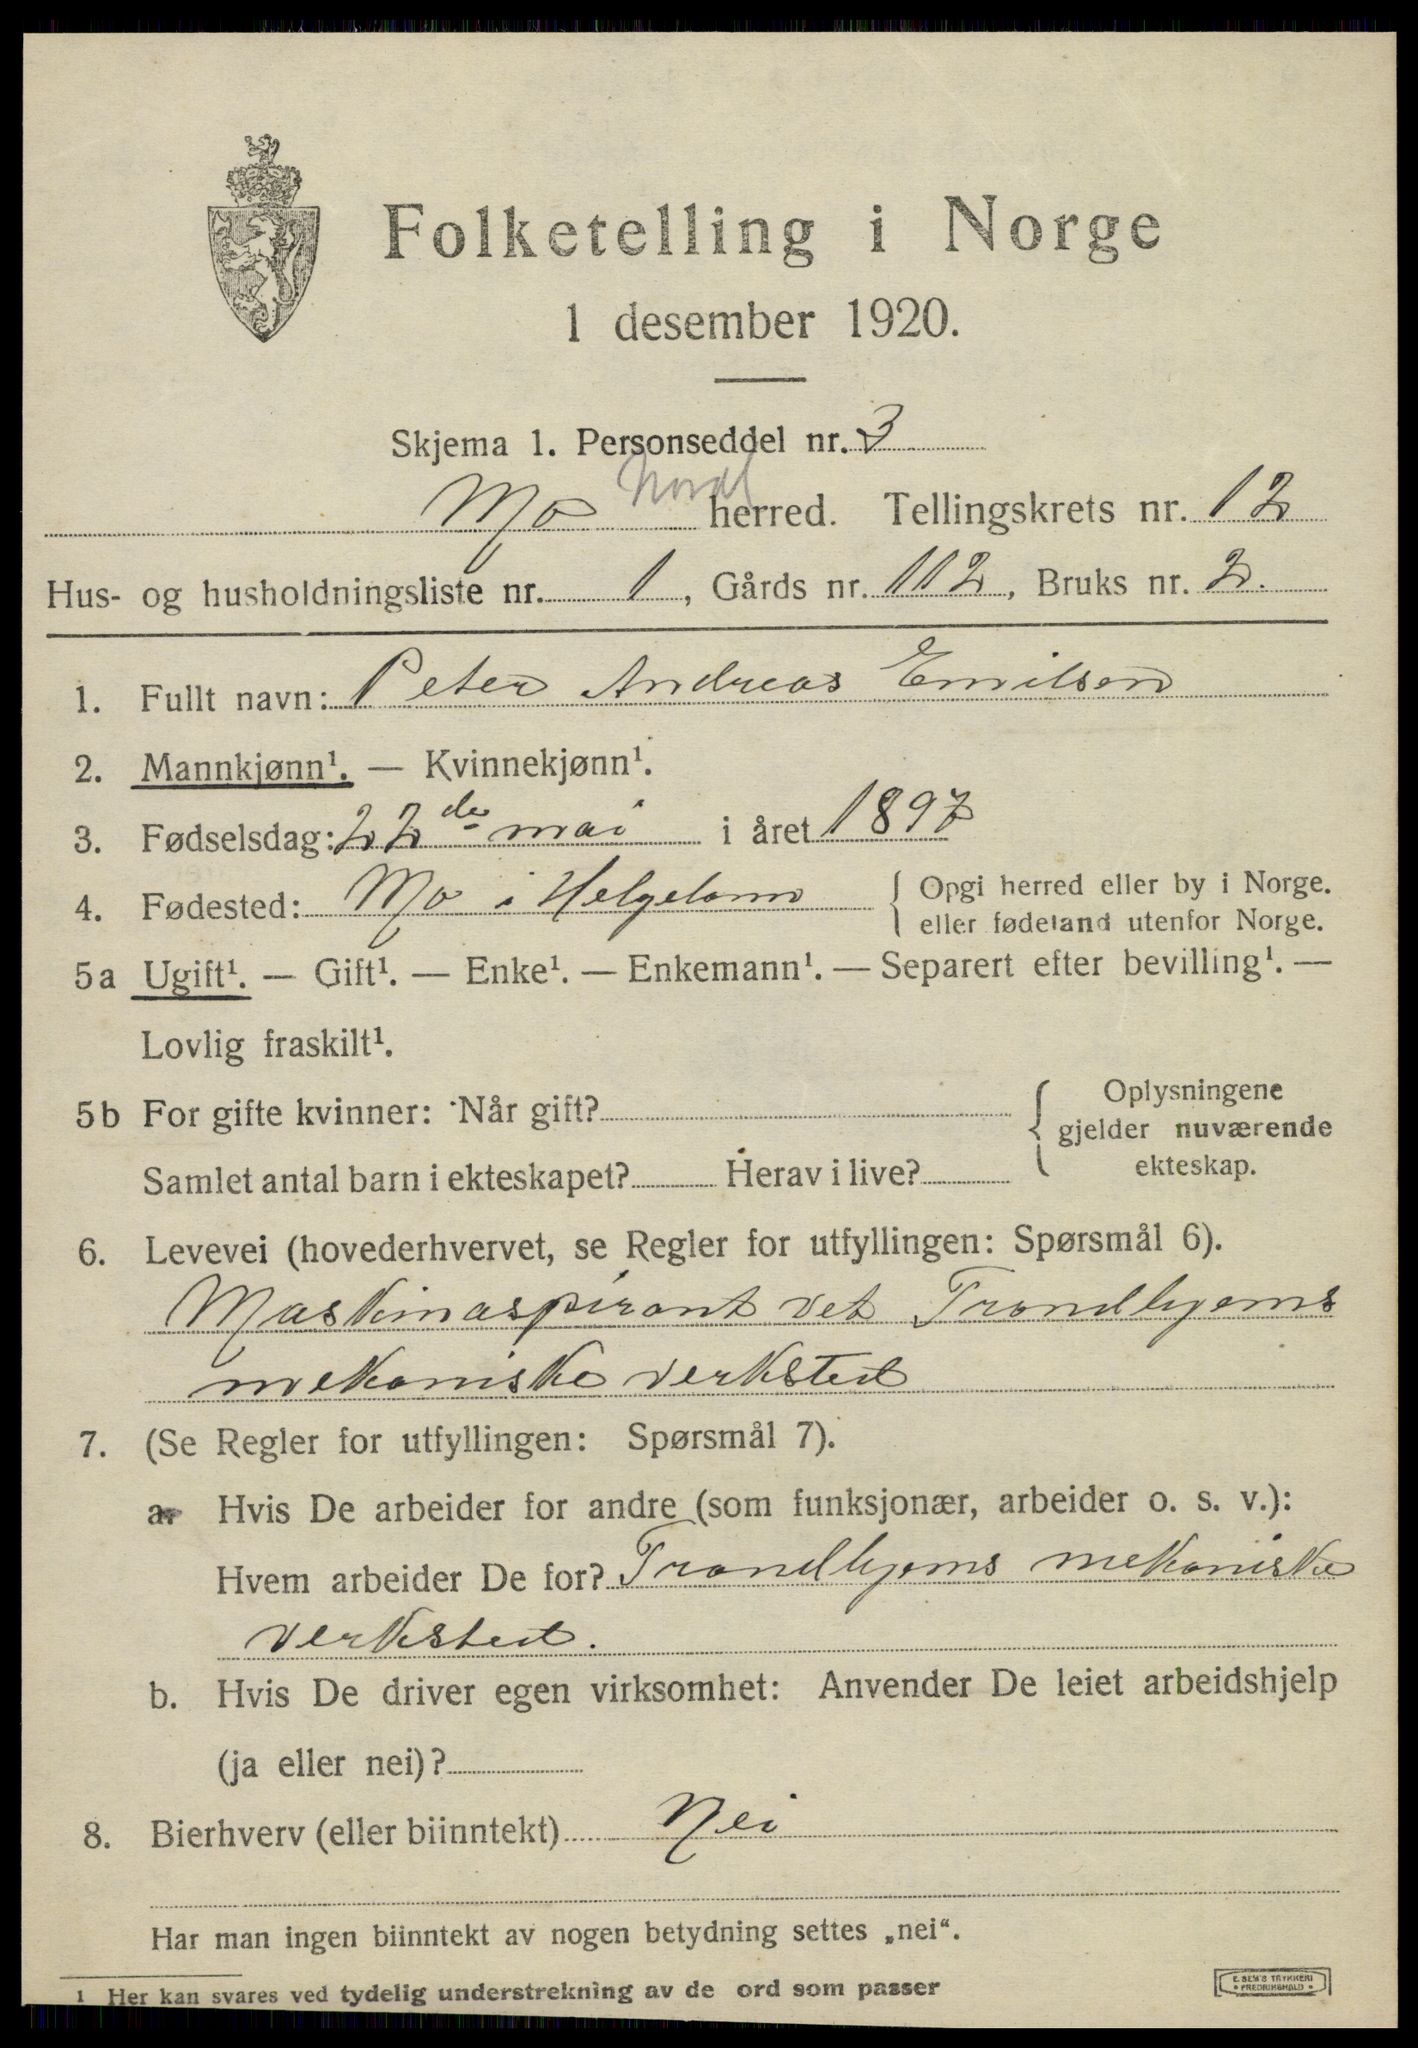 Folketelling i Norge
1 desember 1920.
Skjema 1. Personseddel nr. 3
Nordl
Mo herred. Tellingskrets nr. 12
Hus- og husholdningsliste nr. 1, Gårds nr. 112, Bruks nr. 2.
1. Fullt navn: Peter Andreas Emilsen
2. Mannkjønn¹. — Kvinnekjønn¹.
3. Fødselsdag: 22de mai i året 1897
4. Fødested: Mo i Helgeland { Opgi herred eller by i Norge.
eller fødeland utenfor Norge.
5a Ugift¹. — Gift¹. — Enke¹. — Enkemann¹. — Separert efter bevilling¹. —
Lovlig fraskilt¹.
5b For gifte kvinner: Når gift? { Oplysningene
gjelder nuværende
Samlet antal barn i ekteskapet? Herav i live? ekteskap.
6. Levevei (hovederhvervet, se Regler for utfyllingen: Spørsmål 6).
Maskinaspirant vet Trondhjems
mekaniske verksted
7. (Se Regler for utfyllingen: Spørsmål 7).
a. Hvis De arbeider for andre (som funksjonær, arbeider o. s. v.):
Hvem arbeider De for? Trondhjems mekaniske
verksted.
b. Hvis De driver egen virksomhet: Anvender De leiet arbeidshjelp
(ja eller nei)?
8. Bierhverv (eller biinntekt) Nei
Har man ingen biinntekt av nogen betydning settes „nei“.
1 Her kan svares ved tydelig understrekning av de ord som passer
E. SEM'S TRYKKERI
• FREDRIKSHALD •